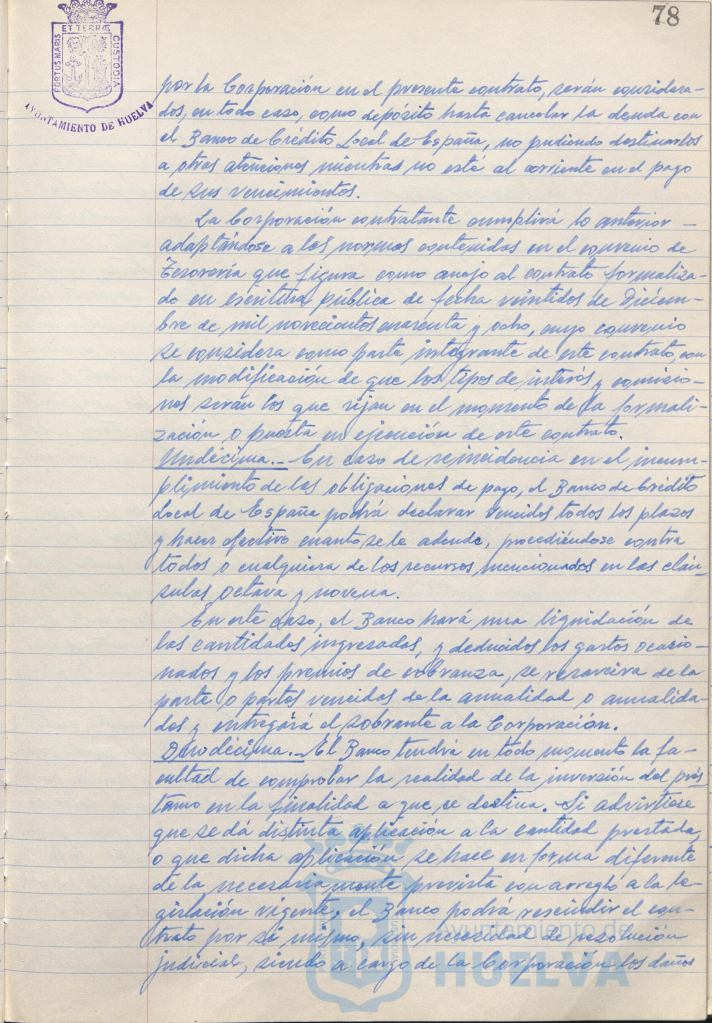 78
PORTUS MARIS ET TERRÆ CUSTODIA
AYUNTAMIENTO DE HUELVA
por la Corporación en el presente contrato, serán considera-
dos, en todo caso, como depósito hasta cancelar la deuda con
el Banco de Crédito Local de España, no pudiendo destinarlos
a otras atenciones mientras no esté al corriente en el pago
de sus vencimientos.
La Corporación contratante cumplirá lo anterior -
adaptándose a las normas contenidas en el convenio de
Tesorería que figura como anejo al contrato formaliza-
do en escritura pública de fecha veintidos de Diciem-
bre de mil novecientos cuarenta y ocho, cuyo convenio
se considera como parte integrante de este contrato, con
la modificación de que los tipos de interés y comisio-
nes serán los que rijan en el momento de la formali-
zación o puesta en ejecución de este contrato.
Undécima.- En caso de reincidencia en el incum-
plimiento de las obligaciones de pago, el Banco de Crédito
Local de España podrá declarar vencidos todos los plazos
y hacer efectivo cuanto se le adeude, procediéndose contra
todos o cualquiera de los recursos mencionados en las cláu-
sulas octava y novena.
En este caso, el Banco hará una liquidación de
las cantidades ingresadas, y deducidos los gastos ocasio-
nados y los premios de cobranza, se resarcirá de la
parte o partes vencidas de la anualidad o anualida-
des y entregará el sobrante a la Corporación.
Duodécima.- El Banco tendrá en todo momento la fa-
cultad de comprobar la realidad de la inversión del prés-
tamo en la finalidad a que se destina. Si advirtiese
que se dá distinta aplicación a la cantidad prestada,
o que dicha aplicación se hace en forma diferente
de la necesariamente prevista con arreglo a la le-
gislación vigente, el Banco podrá rescindir el con-
trato por sí mismo, sin necesidad de resolución
judicial, siendo a cargo de la Corporación los daños
Ayuntamiento de
HUELVA